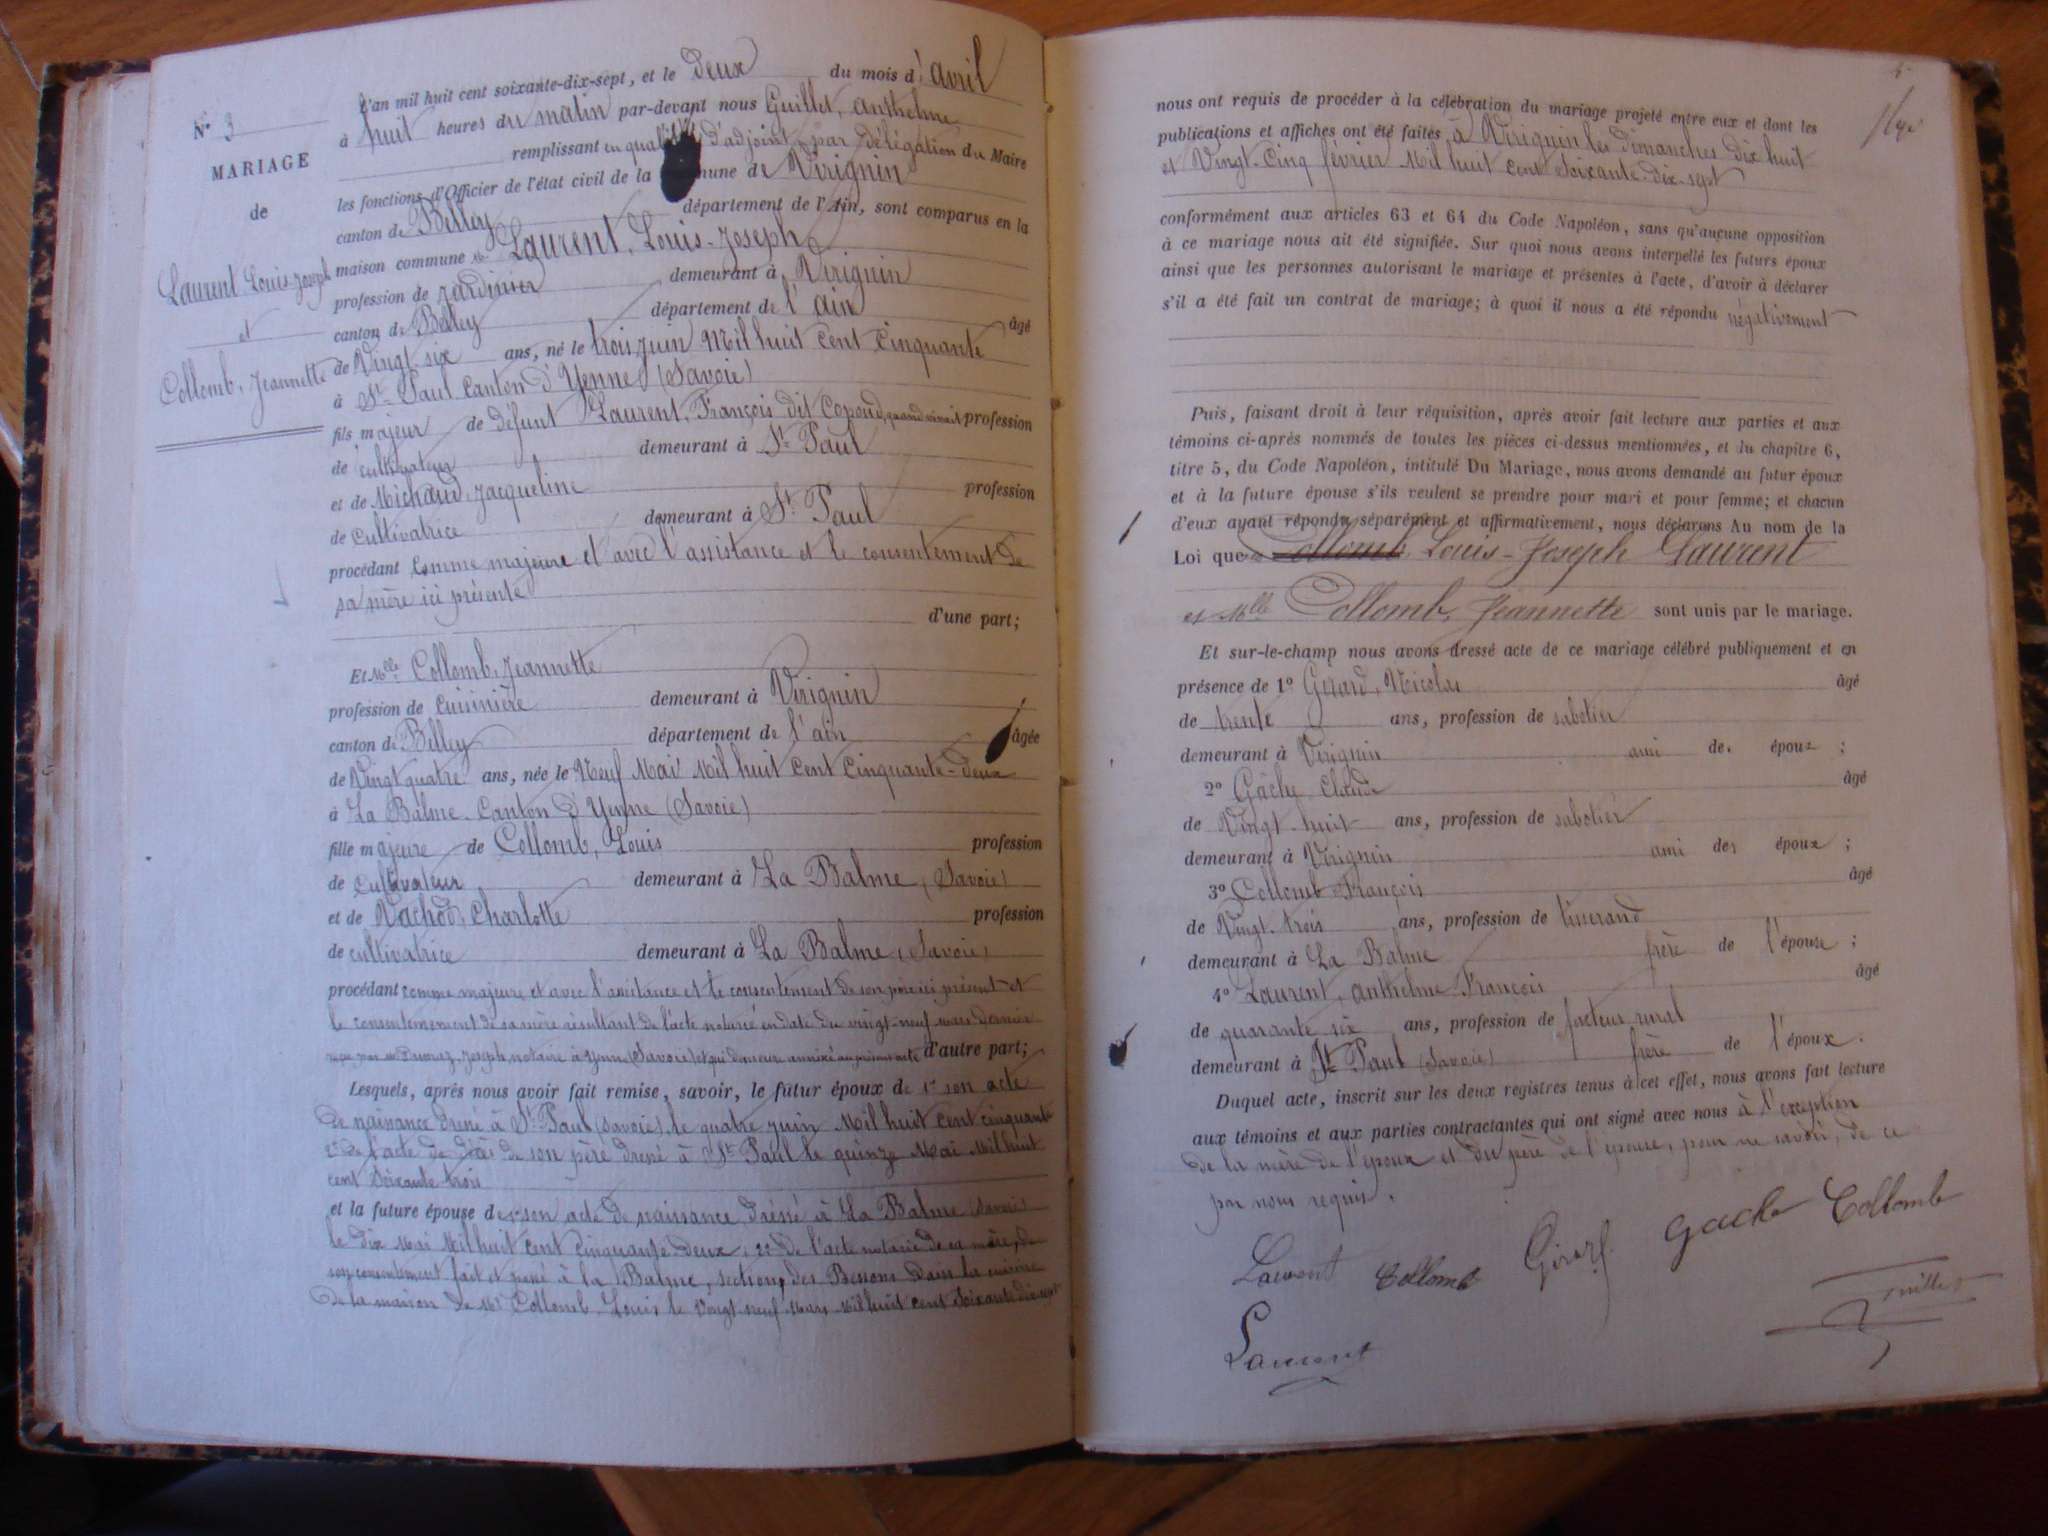 N° 3
MARIAGE
de
Laurent Louis-Joseph
et
Collomb, Jeannette
L'an mil huit cent soixante-dix-sept, et le deux du mois d'avril
à huit heures du matin par-devant nous Guillet, Anthelme
remplissant en qualité d'adjoint par délégation du Maire
les fonctions d'Officier de l'état civil de la mune de Virignin
canton de Belley département de l'Ain, sont comparus en la
maison commune Mr Laurent, Louis-Joseph
profession de Jardinier demeurant à Virignin
canton de Belley département de l'ain âgé
de Vingt-six ans, né le trois juin Mil huit cent cinquante
à St Paul Canton d'Yenne (Savoie)
fils majeur de défunt Laurent, François dit Copond, quand vivait profession
de cultivateur demeurant à St Paul
et de Michaud, Jacqueline profession
de cultivatrice demeurant à St Paul
procédant comme majeur et avec l'assistance et le consentement de
sa mère ici présente
d'une part;
Et Mlle Collomb, Jeannette
profession de cuisinière demeurant à Virignin
canton de Belley département de l'ain âgée
de Vingt quatre ans, née le Neuf Mai Mil huit cent cinquante-deux
à La Balme Canton d'Yenne (Savoie)
fille majeure de Collomb, Louis profession
de cultivateur demeurant à La Balme (Savoie)
et de Vachod, Charlotte profession
de cultivatrice demeurant à La Balme (Savoie)
procédant comme majeure et avec l'assistance et le consentement de son père ici présent et
le consentement de sa mère résultant de l'acte notarié en date du vingt-neuf mars dernier
reçu par Me Joseph, notaire à Yenne (Savoie) et qui demeure annexé au présent acte d'autre part;
Lesquels, après nous avoir fait remise, savoir, le futur époux de 1° son acte
de naissance dressé à St Paul (Savoie), le quatre juin Mil huit cent cinquante
2° de l'acte de décès de son père dressé à St Paul le quinze Mai Mil huit
cent soixante trois
et la future épouse de 1° son acte de naissance dressé à La Balme (Savoie)
le dix Mai Mil huit cent cinquante deux, 2° de l'acte notarié de sa mère, de
son consentement fait et passé à la Balme, section des Bessons dans la cuisine
de la maison de Mr Collomb Louis le Vingt neuf Mars Mil huit cent soixante dix sept
nous ont requis de procéder à la célébration du mariage projeté entre eux et dont les
publications et affiches ont été faites à Virignin les dimanches dix huit
et Vingt-Cinq février Mil huit cent soixante-dix-sept
conformément aux articles 63 et 64 du Code Napoléon, sans qu'aucune opposition
à ce mariage nous ait été signifiée. Sur quoi nous avons interpellé les futurs époux
ainsi que les personnes autorisant le mariage et présentes à l'acte, d'avoir à déclarer
s'il a été fait un contrat de mariage; à quoi il nous a été répondu négativement
Puis, faisant droit à leur réquisition, après avoir fait lecture aux parties et aux
témoins ci-après nommés de toutes les pièces ci-dessus mentionnées, et du chapitre 6,
titre 5, du Code Napoléon, intitulé Du Mariage, nous avons demandé au futur époux
et à la future épouse s'ils veulent se prendre pour mari et pour femme; et chacun
d'eux ayant répondu séparément et affirmativement, nous déclarons Au nom de la
Loi que Collomb Louis-Joseph Laurent
et Mlle Collomb, Jeannette sont unis par le mariage.
Et sur-le-champ nous avons dressé acte de ce mariage célébré publiquement et en
présence de 1° Girard, Nicolas âgé
de trente ans, profession de sabotier
demeurant à Virignin ami des époux;
2° Gâche Claude âgé
de Vingt-huit ans, profession de sabotier
demeurant à Virignin ami des époux;
3° Collomb François âgé
de Vingt-trois ans, profession de tisserand
demeurant à La Balme frère de l'épouse;
4° Laurent, Anthelme François âgé
de quarante six ans, profession de facteur rural
demeurant à St Paul (Savoie) frère de l'époux.
Duquel acte, inscrit sur les deux registres tenus à cet effet, nous avons fait lecture
aux témoins et aux parties contractantes qui ont signé avec nous à l'exception
de la mère de l'époux et du père de l'épouse, pour ne savoir, de ce
par nous requis.
Laurent Collomb Girard Gache Collomb
Laurent Guillet